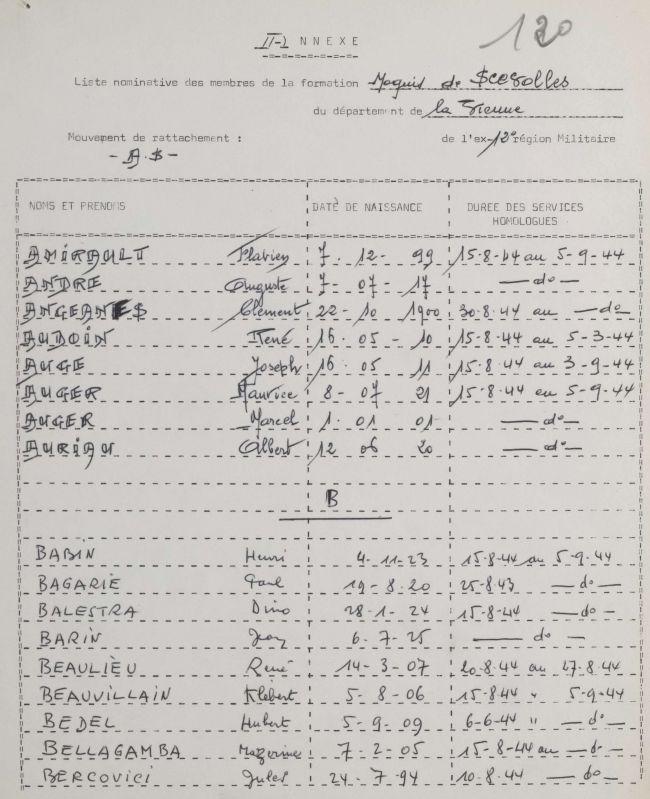 120
II-2 NNEXE
Liste nominative des membres de la formation Maquis de Scevolles
du département de la Vienne
Mouvement de rattachement : de l'ex-12° région Militaire
- A.S -
NOMS ET PRENOMS DATE DE NAISSANCE DUREE DES SERVICES
HOMOLOGUES
AMIRAULT Flavien 7. 12- 99 15-8-44 au 5-9-44
ANDRE Auguste 7- 07- 17 — do —
ANGEANES Clément 22- 10 1900 30.8.44 au — do —
AUDOIN René 16. 05 - 10 15-8-44 au 5-3-44
AUGE Joseph 16. 05 11 15.8.44 au 3-9-44
AUGER Maurice 8- 07 21 15.8.44 au 5-9-44
AUGER Marcel 1. 01 01 — do —
AURIAU Albert 12 06 20 — do —
B
BABIN Henri 4-11-23 15-8-44 au 5-9-44
BAGARIE Paul 19-8-20 25-8-43 — do —
BALESTRA Dino 28-1-24 15-8-44 — do —
BARIN Jean 6-7-25 — do —
BEAULIEU René 14-3-07 20-8-44 au 27-8-44
BEAUVILLAIN Klébert 5-8-06 15-8-44 " 5-9-44
BEDEL Hubert 5-9-09 6-6-44 " — do —
BELLAGAMBA 7-2-05 15-8-44 au — d —
BERCOVICI Jules 24-7-94 10-8-44 — do —